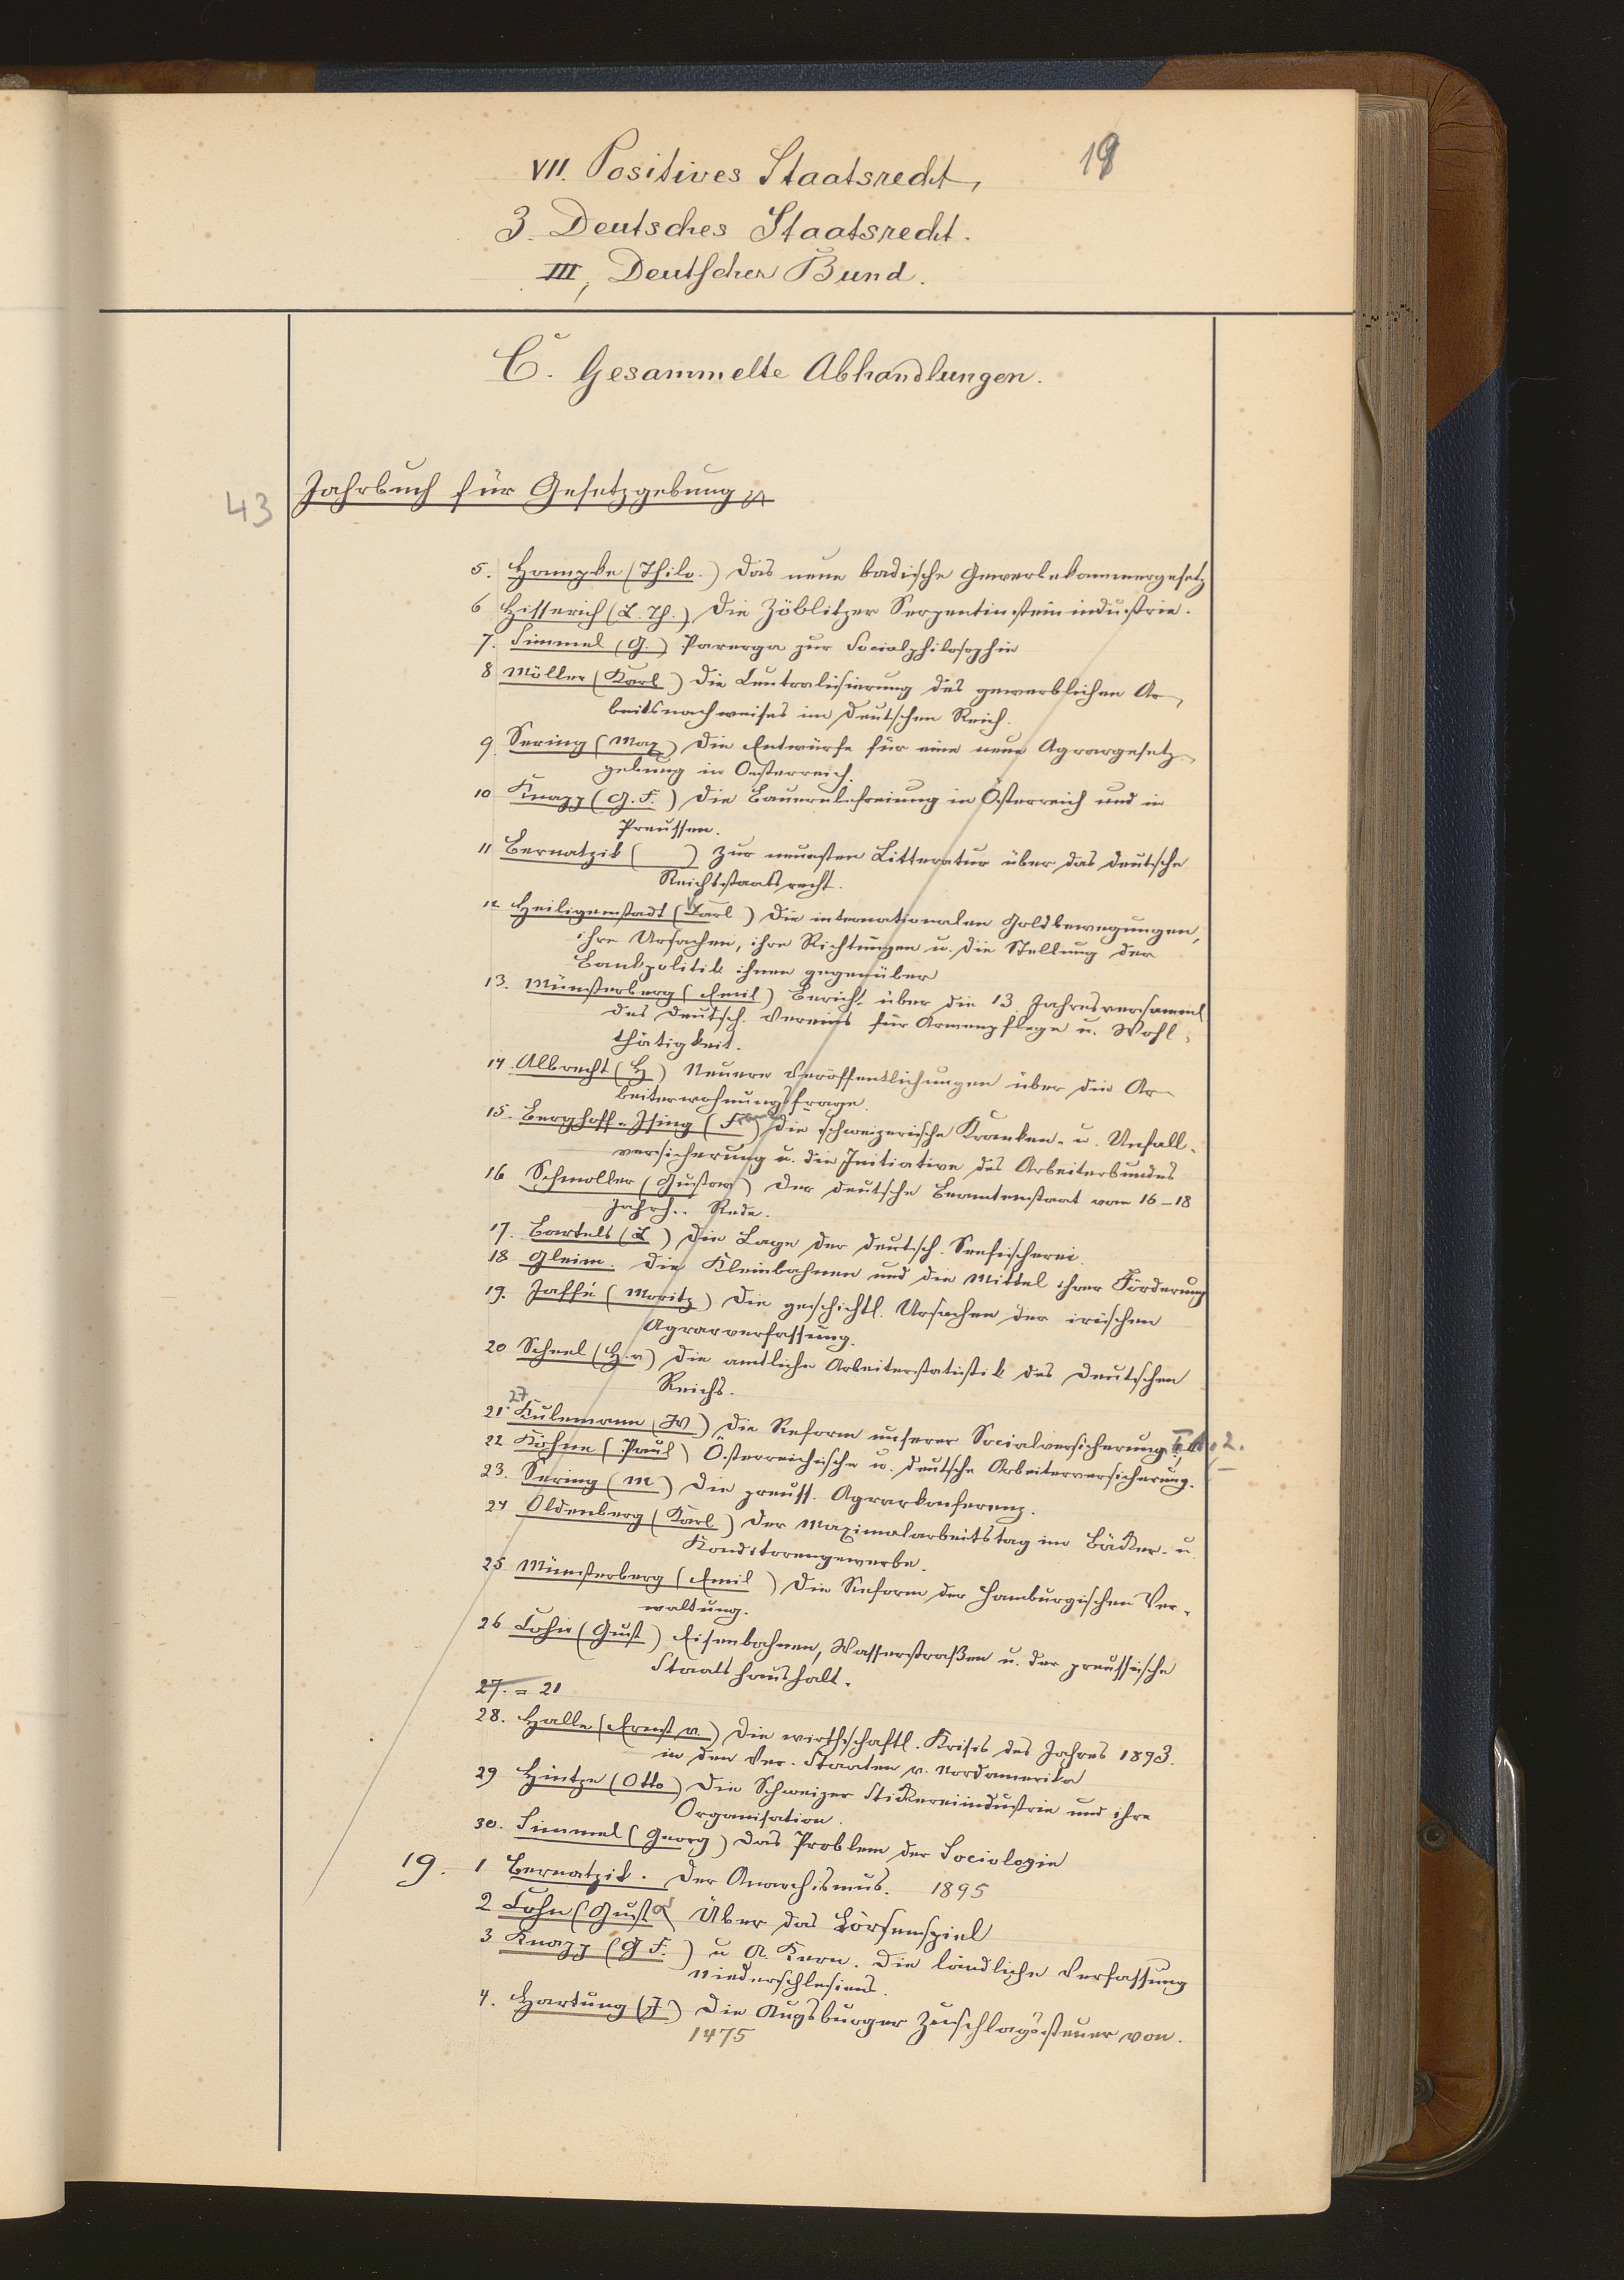 19
VII. Positives Staatsrecht,
3. Deutsches Staatsrecht.
III, Deutscher Bund.
C. Gesammelte Abhandlungen.
43 Jahrbuch für Gesetzgebung
5. Hampke (Thilo.) Das neue badische Gewerbekammergesetz
6 Hisserich (L. Th.) Die Zöblitzer Serpentinsteinindustrie.
7. Simmel (G.) Parerga zur Socialphilosophie
8 Möller (Karl) Die Centralisierung des gewerblichen Ar-
beitsnachweises im Deutschen Reich.
9. Sering (Max) Die Entwürfe für eine neue Agrargesetz-
gebung in Oesterreich.
10 Knapp (G. F.) Die Bauernbefreiung in Österreich und in
Preussen.
11 Bernatzik ( ) Zur neuesten Litteratur über das deutsche
Reichsstaatsrecht.
12 Heiligenstadt (Karl) Die internationalen Goldbewegungen,
ihre Ursachen, ihre Richtungen u. die Stellung der
Bankpolitik ihnen gegenüber
13. Münsterberg (Emil) Bericht über die 13. Jahresversamml
des Deutsch. Vereins für Armenpflege u. Wohl-
thätigkeit.
14. Albrecht (H) Neuere Veröffentlichungen über die Ar-
beiterwohnungsfrage.
15. Berghoff-Ising (Franz) Die schweizerische Kranken- u. Unfall-
versicherung u. die Initiative des Arbeiterbundes
16 Schmoller (Gustav) Der deutsche Beamtenstaat vom 16-18
Jahrh. Rede.
17. Bartels (L) Die Lage der deutsch. Seefischerei.
18 Gleim. Die Kleinbahnen und die Mittel ihrer Förderung
19. Jaffé (Moritz) Die geschichtl. Ursachen der irischen
Agrarverfassung.
20 Scheel (H. v) Die amtliche Arbeiterstatistik des Deutschen
Reichs.
27
21. Kulemann (W) Die Reform unserer Socialversicherung. 1, 2.
22 Köhne (Paul) Österreichische u. deutsche Arbeiterversicherung.
23. Sering (M) Die preuss. Agrarkonferenz.
24 Oldenberg (Karl) Der Maximalarbeitstag im Bäcker- u.
Konditorengewerbe.
25 Münsterberg (Emil) Die Reform der Hamburgischen Ver-
waltung.
26 Cohn (Gust) Eisenbahnen, Wasserstraßen u. der preussische
Staatshaushalt.
27. = 21
28. Halle (Ernst v.) Die wirthschaftl. Krisis des Jahres 1893.
in den Ver. Staaten v. Nordamerika
29 Hintze (Otto) Die Schweizer Stickereiindustrie und ihre
Organisation.
30. Simmel (Georg) Das Problem der Sociologie
19. 1 Bernatzik. Der Anarchismus. 1895
2 Cohn (Gust) Über das Börsenspiel
3 Knapp (G F.) u A. Kern. Die ländliche Verfassung
Niederschlesiens.
4. Hartung (J) Die Augsburger Zuschlagssteuer von.
1475